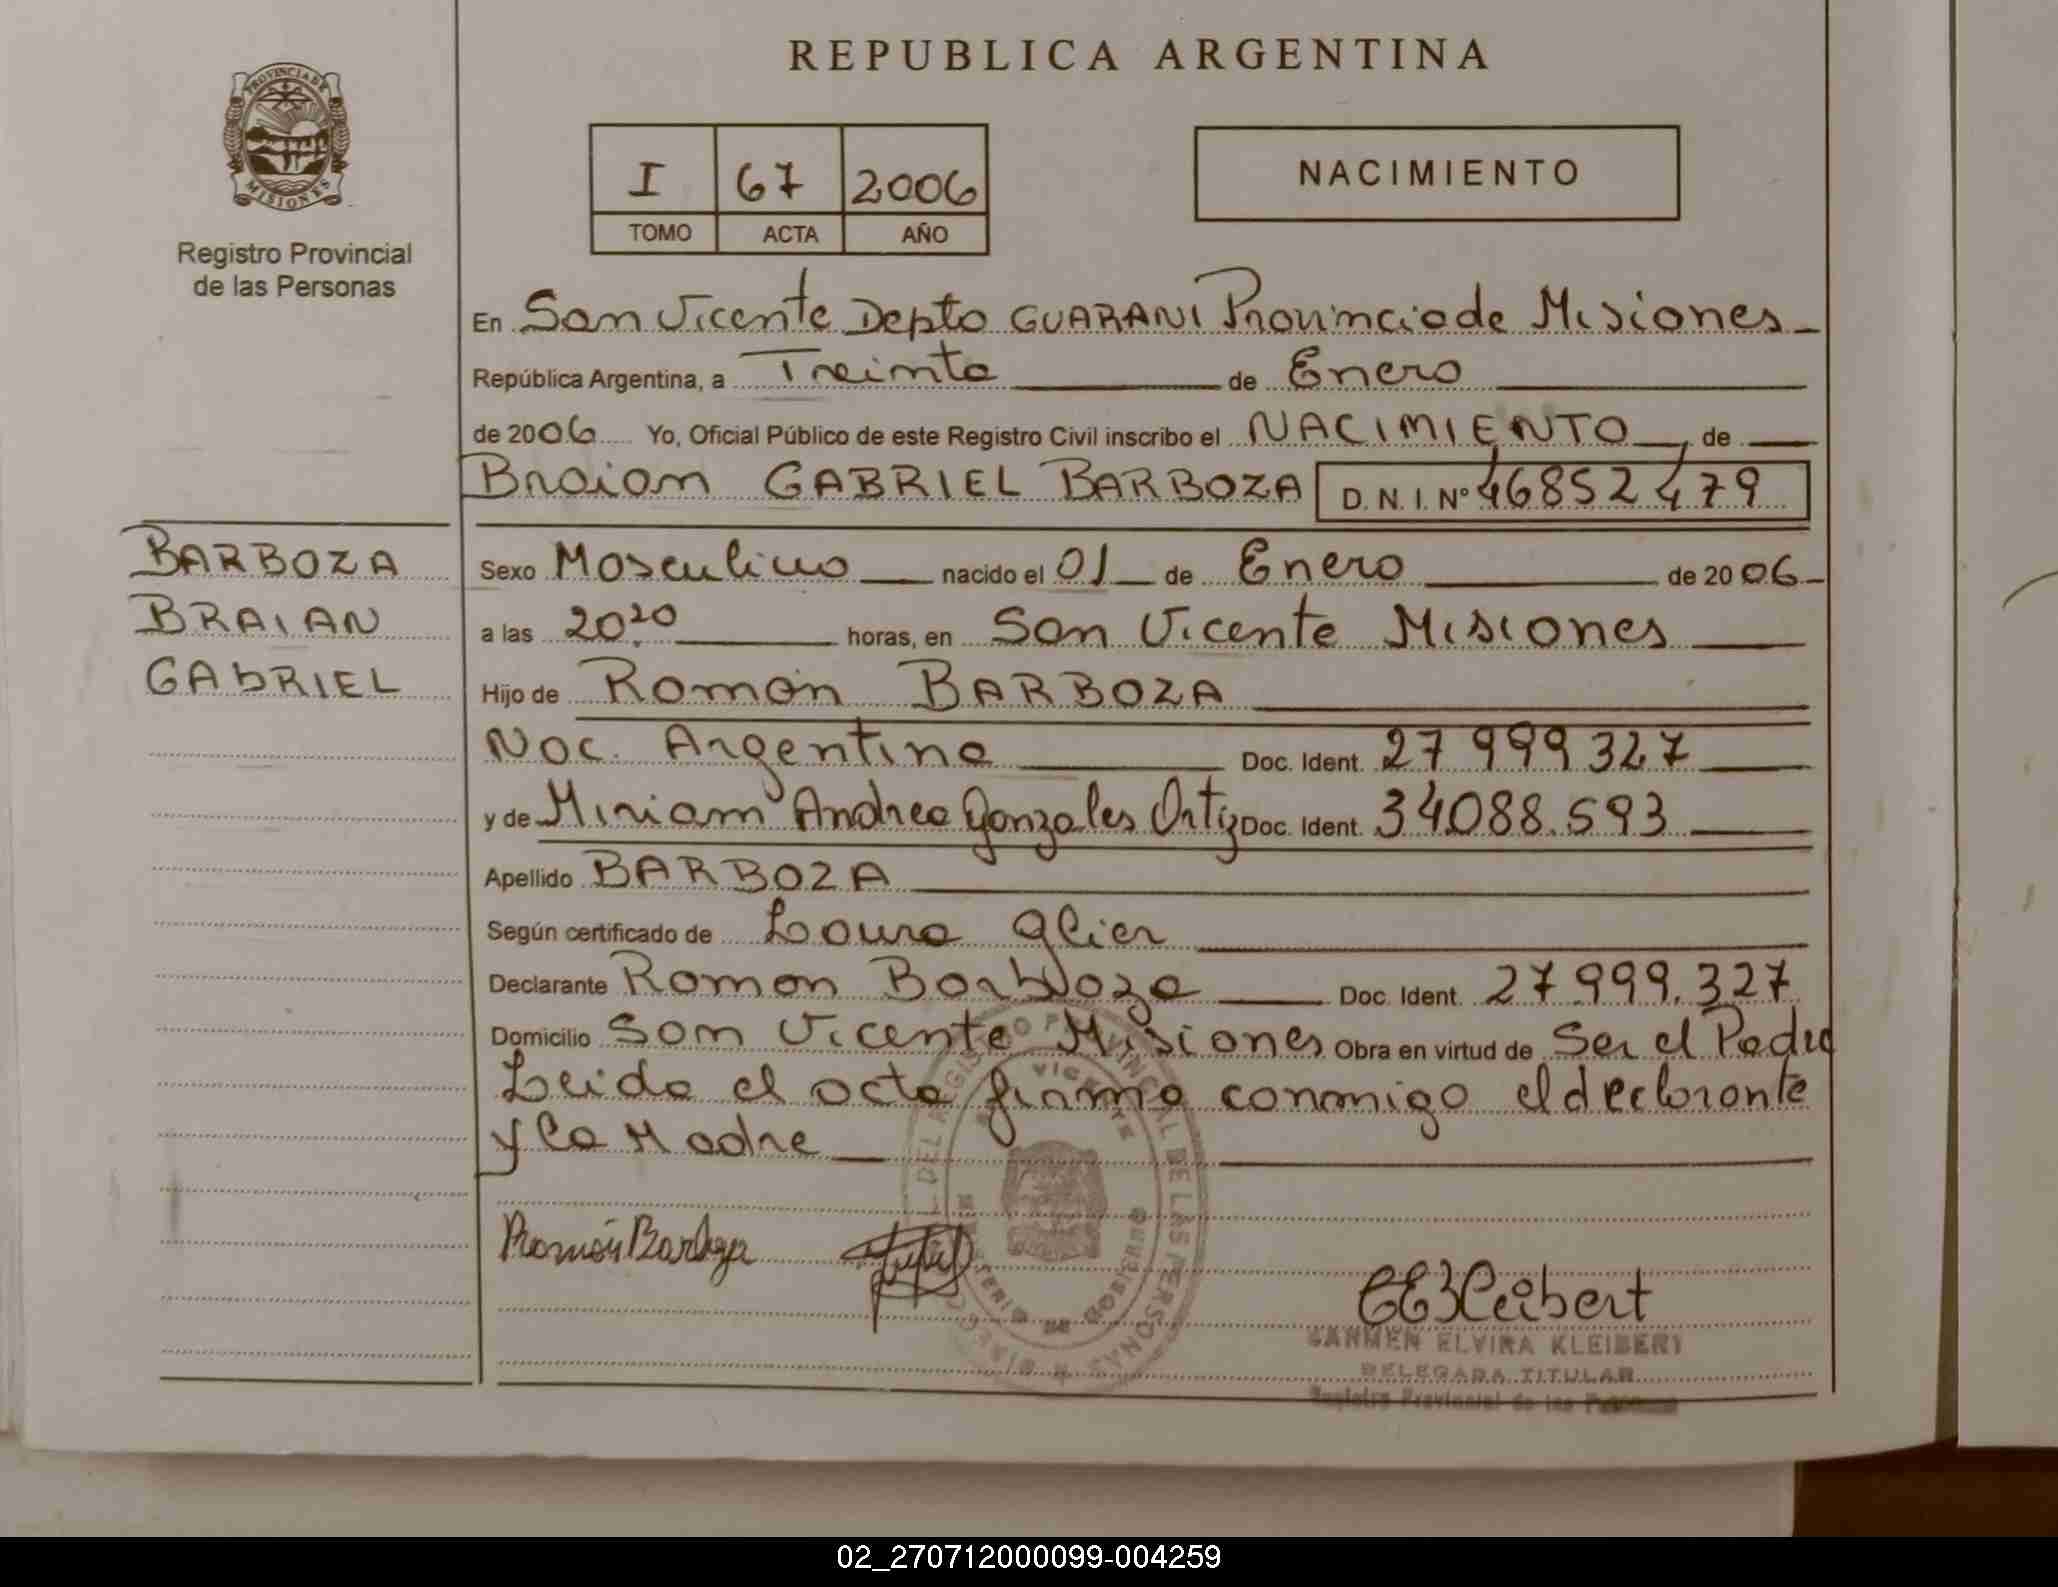 REPUBLICA ARGENTINA
PROVINCIA DE
MISIONES
Registro Provincial
de las Personas
I 67 2006
TOMO ACTA AÑO
NACIMIENTO
En San Vicente Depto GUARANI Provincia de Misiones
República Argentina, a Treinta de Enero
de 2006 Yo, Oficial Público de este Registro Civil inscribo el NACIMIENTO de
Braian GABRIEL BARBOZA D.N.I. Nº 46852479
BARBOZA
BRAIAN
GAbRIEL
Sexo Masculino nacido el 01 de Enero de 2006
a las 20 20 horas, en San Vicente Misiones
Hijo de Ramón BARBOZA
Nac. Argentina Doc. Ident. 27 999 327
y de Miriam Andrea Gonzales Ortiz Doc. Ident. 34.088.593
Apellido BARBOZA
Según certificado de Laura Glier
Declarante Ramon Barboza Doc. Ident. 27 999.327
Domicilio San Vicente Misiones Obra en virtud de Ser el Padre
Leida el acta firma conmigo el declarante
y la Madre
Ramón Barboza
CEKleibert
CARMEN ELVIRA KLEIBERT
DELEGADA TITULAR
Registro Provincial de las Personas
02_270712000099-004259